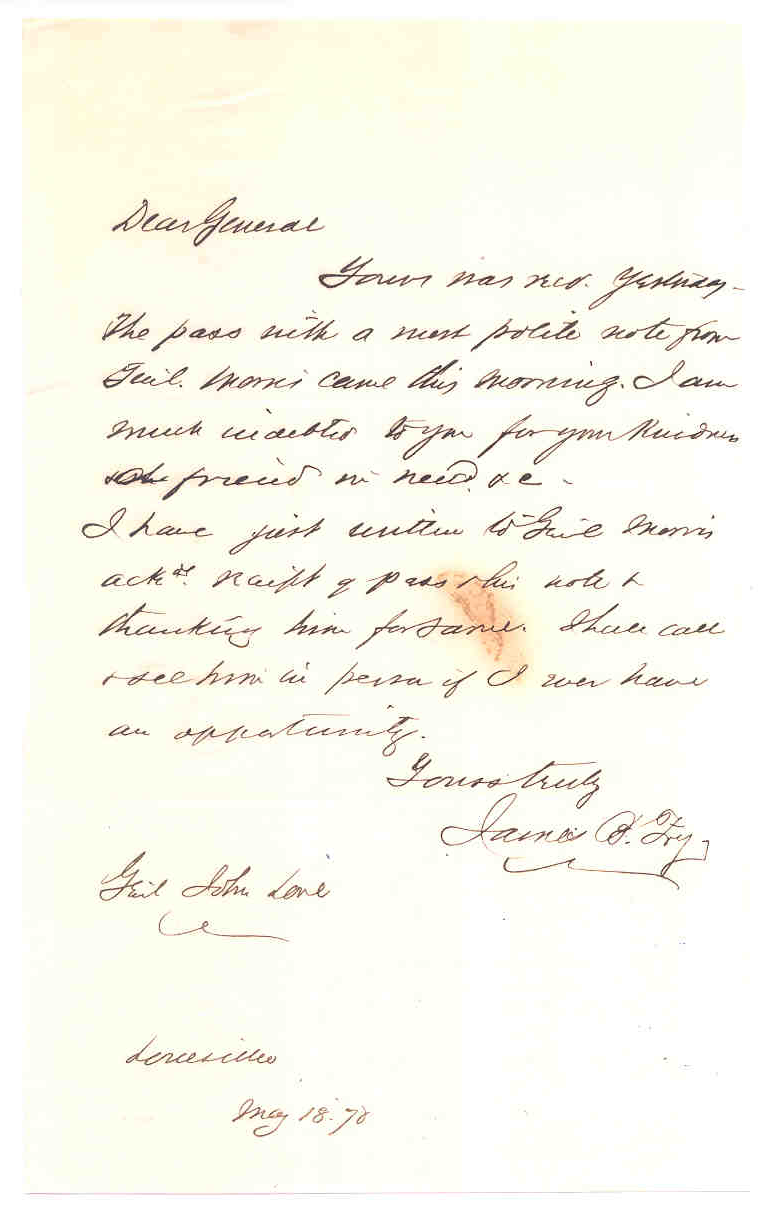 Dear General
Yours was recd. yesterday -
The pass with a most polite note from
Genl. Morris came this morning. I am
much indebted to you for your kindness
friend in need &c -
I have just written to Genl Morris
ackg. receipt of pass & his note &
thanking him for same. Shall call
& see him in person if I ever have
an opportunity.
Yours truly
James B. Fry
Genl John Love
Louisville
May 18. 70